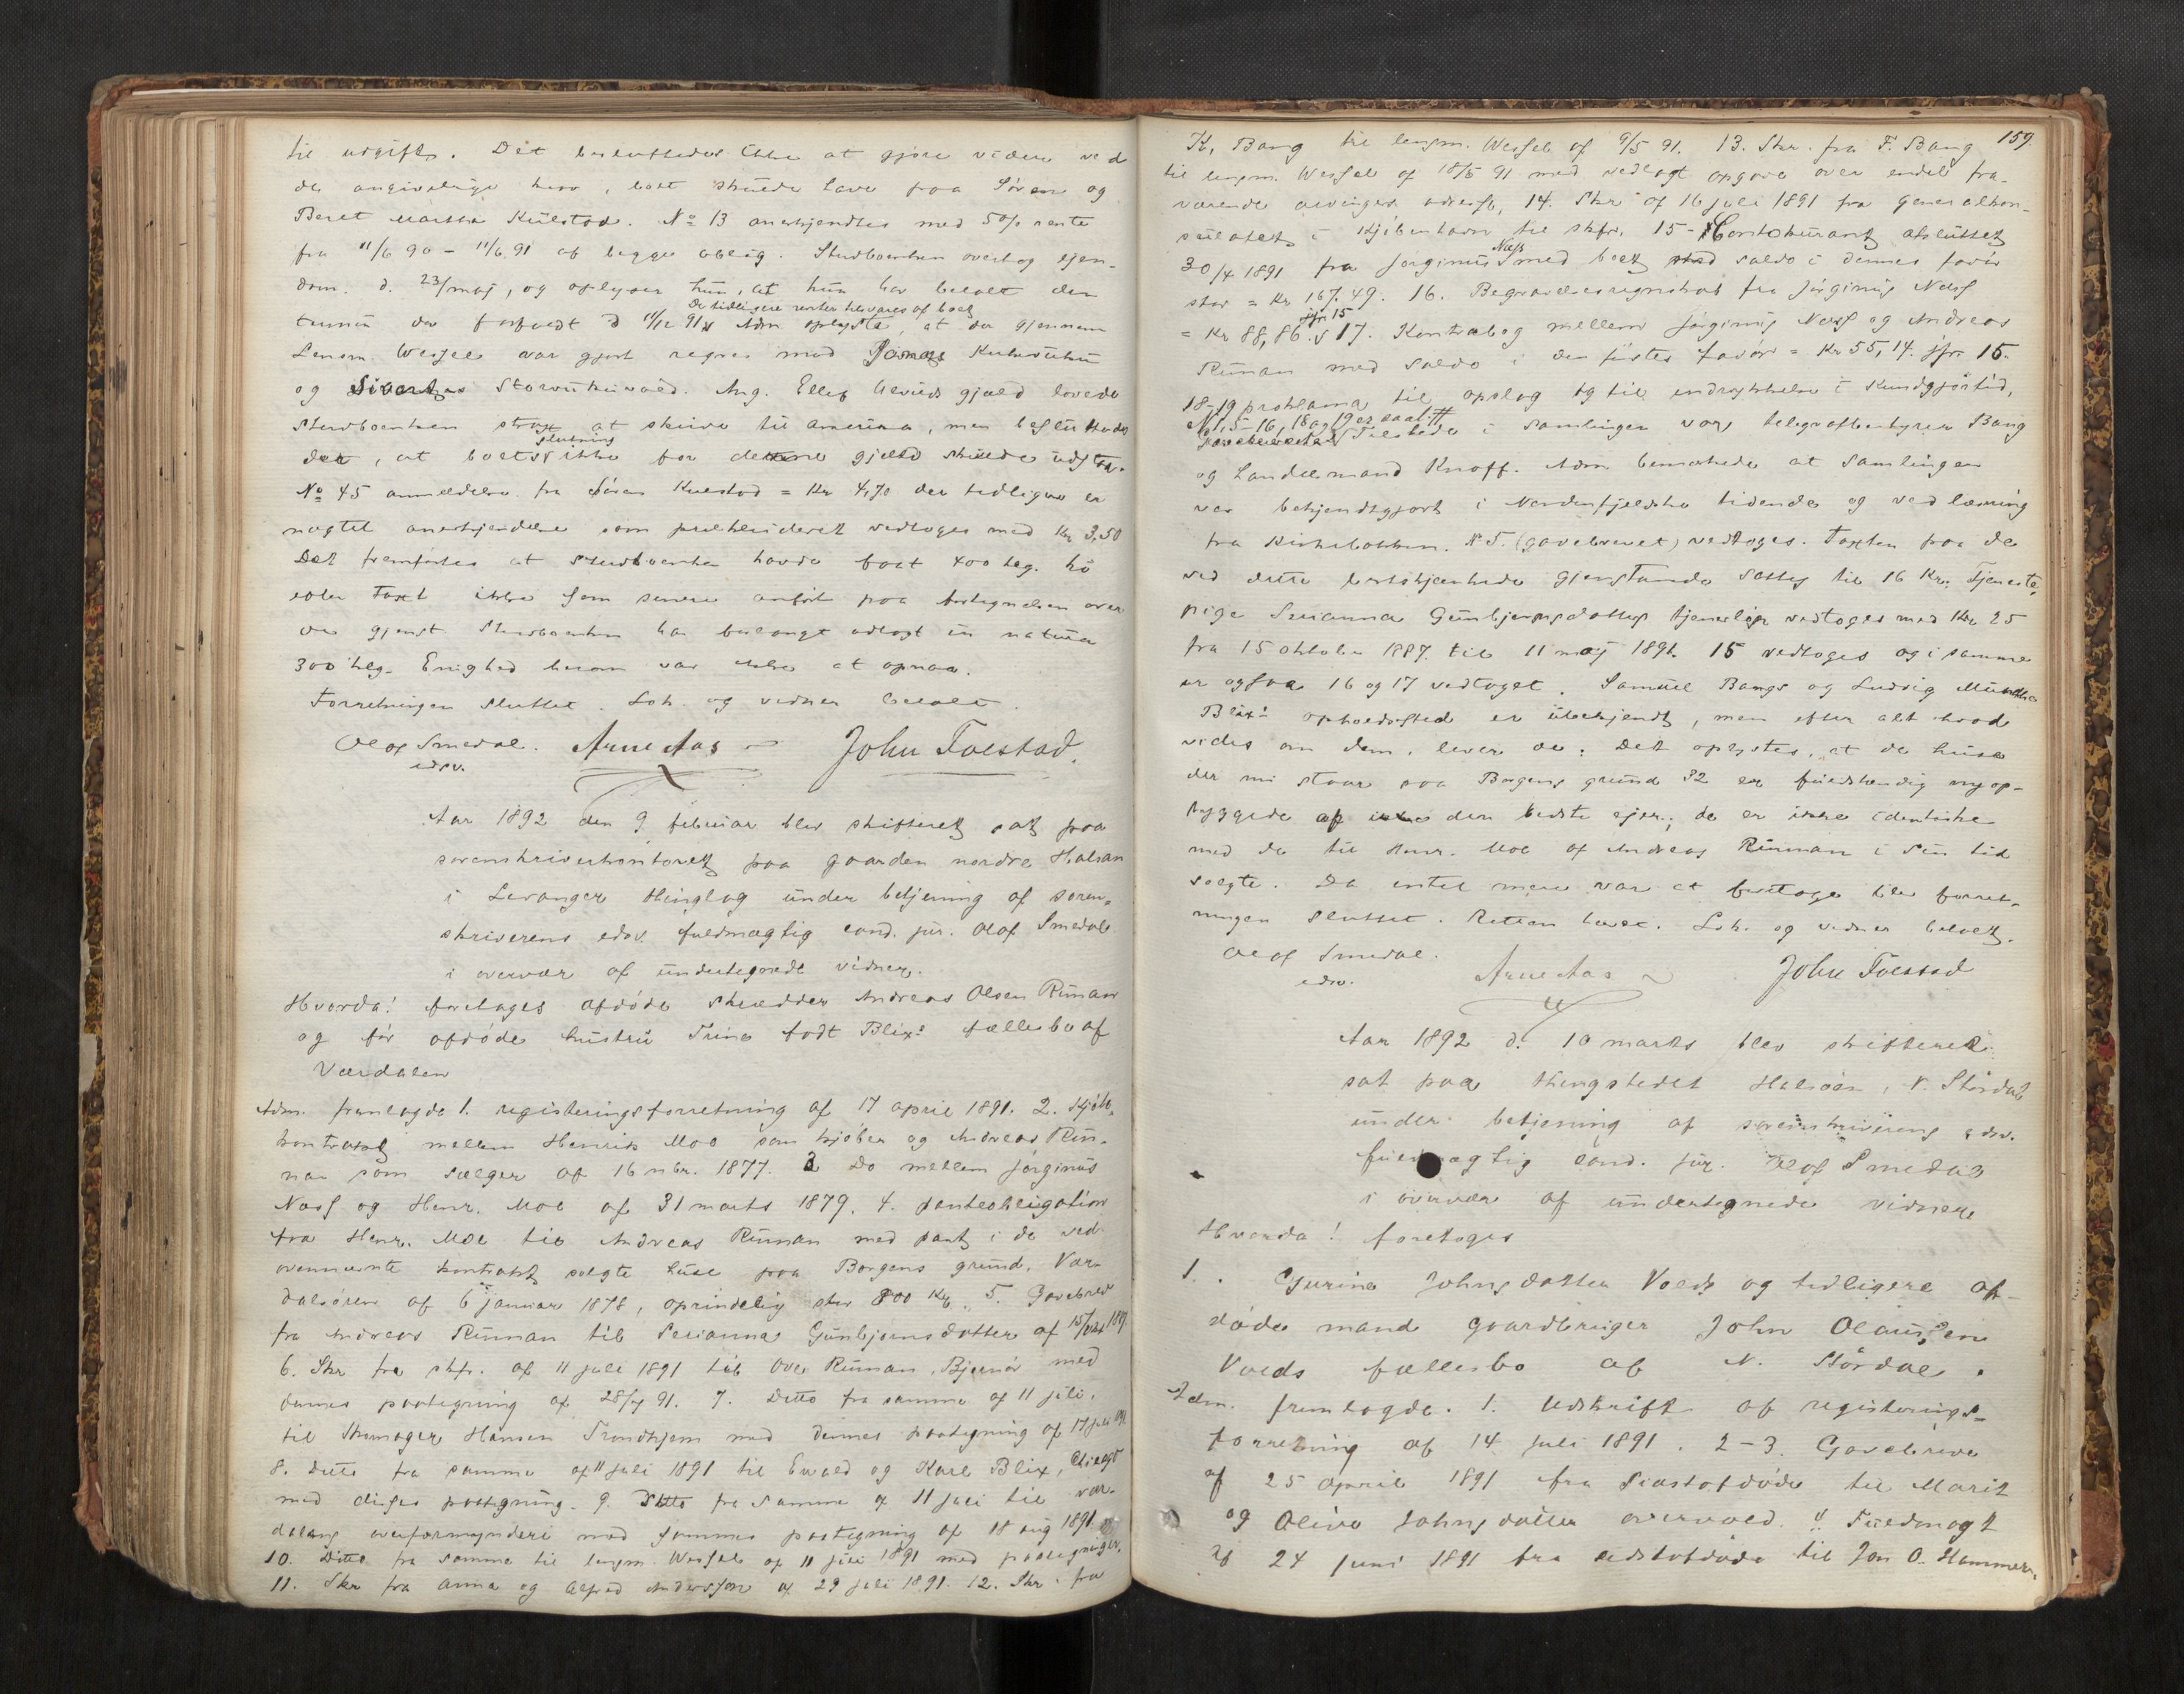 til udgifts. Det besluttedes ikke at gjøre videre ved
de angivelige krav, boet skulde have paa Søren og
Beret Martha Kulstad. No 13 anerkjendtes med 5 o/o rente
fra 11/6 90 - 11/6 91 af begge oblig. Stervboenken overtog ejen-
dom. d. 23/maj, og oplyser hun, at hun har betalt den
De tidligere renter besvares af boet
termin der forfaldt d 11/12 91 Adm oplyste, at der gjennem
Lensm. Wessel var gjort regres mod
og Ang. Ellef gjæld lovede
Stervboenken strax at skrive til Amerika, men besluttedes
slutning
det, at boets ikke for denne gjæld skulde udstaa.
No 45 anmeldelse fra Søren Kulstad = Kr 4,70 der tidligere er
nægtet anerkjendelse som prækluderet vedtoges med Kr 3.50
Det fremførtes at stervboenken havde faaet 400 kg. hø
efter Taxt ikke som senere anført paa fortegnelsen over
de gjenst. Stervboenken har forlangt udlagt in natura
300 kg. Enighed herom var ikke at opnaa.
Forretningen sluttet. Loh. og vidner betalt.
Olaf Smedal. Arne Aas John Tolstad.
edsv.
Aar 1892 den 9 februar blev skifteret sat paa
sorenskriverkontoret paa gaarden nordre Halsan
i Levanger thinglag under betjening af soren-
skriverens edsv. fuldmægtig cand. jur. Olaf Smedal
i overvær af undertegnede vidner.
Hvorda! foretages afdøde skrædder Andreas Olsen Rinnan
og før afdøde hustru Trine født Blix's fællesbo af
Værdalen
Adm. fremlagde 1. registreringsforretning af 17 april 1891. 2. Kjøbe-
kontrakt mellem Henrik Moe som kjøber og Andreas Rin-
nan som sælger af 16 nbr. 1877. 3 Do mellem Jørginus
Næss og Henr. Moe af 31 marts 1879. 4. panteobligation
fra Henr. Moe til Andreas Rinnan med pant i de ved
ovennævnte kontrakt solgte huse paa Borgens grund, Vær-
dalsøren af 6 januar 1878, oprindelig stor 800 Kr. 5. Gavebrev
fra Andreas Rinnan til Serianna Gunbjørnsdatter af
6. Skr fra skfr. af 11 juli 1891 til Ove Rinnan, Bjørnør med
dennes paategning af 28/7 91. 7. Ditto fra samme af 11 juli,
til Skomager Hansen Trondhjem med dennes paategning af 17 juli 1891
8. Ditto fra samme af 11 juli 1891 til Ewald og Karl Blix, Chicago
med disses paategning. 9. Ditto fra samme af 11 juli til Vær-
dalens overformynderi med sammes paategning af 18 aug 1891.
10. Ditto fra samme til lensm. Wessel af 11 juli 1891 med paategninger.
11. Skr fra Anna og Alfred Andersson af 29 juli 1891. 12. Skr. fra
159.
K. Bang til lensm. Wessel af 9/5 91. 13. Skr. fra F. Bang
til lensm. Wessel af 18/5 91 med vedlagt opgave over endel fra-
værende arvingers adresse, 14. Skr af 16 juli 1891 fra generalkon-
sulatet i Kjøbenhavn til skfr. 15 - Contokurant afsluttet
Næss
30/4 1891 fra Jørginus med boet saldo i dennes favør
stor = Kr 167.49. 16. Begravelsesregnskab fra Jørginus Næss
jfr. 15
= Kr 88,86. 17. Kontrabog mellem Jørginus Næss og Andreas
Rinnan med saldo i den førstes favør = Kr 55,14. jfr 15.
18-19 proklama til opslag og til indrykkelse i Kundgjørtid,
N 1, 5-16, 18 og 19 er saal:
Tilstede i samlingen var telegrafbestyrer Bang
og Landelmand Knoff. Adm. bemærkede at samlingen
var bekjendtgjort i Nordenfjeldske tidende og ved læsning
fra Kirkebakken. N 5. (gavebrevet) vedtoges. Taxten paa de
ved dette bortskjænkede gjenstande sattes til 16 Kr. Tjeneste-
pige Serianna Gunbjørnsdatters tjenerløn vedtoges med Kr 25
fra 15 oktober 1887 til 11 maj 1891. 15 vedtoges og i samme
er ogsaa 16 og 17 vedtaget. Samuel Bangs og Ludvig
Blix' opholdssted er ubekjendt, men efter alt hvad
vides om dem, lever de. Det oplystes, at de huse
der nu staar paa Borgens grund 32 er fuldstændig nyop-
byggede af den sidste ejer; de er ikke identiske
med de til Henr. Moe af Andreas Rinnan i sin tid
solgte. Da intet mere var at foretage blev forret-
ningen sluttet. Retten hævet. Loh. og vidner betalt.
Olaf Smedal. Arne Aas John Tolstad
edsv.
Aar 1892 d. 10 marts blev skifteret
sat paa thingstedet Halsøen, N. Stördal
under betjening af sorenskriverens edsv.
fuldmægtig cand. jur. Olaf Smedal
i overvær af undertegnede vidner
Hvorda! foretoges
1. Gurine Johnsdatter Volds og tidligere af-
døde mand gaardbruger John Olaussen
Volds fællesbo af N. Stördal.
Adm. fremlagde. 1. Udskrift af registrerings-
forretning af 14 juli 1891. 2-3. Gavebreve
af 25 april 1891 fra sidstafdøde til Marit
og Oline Johnsdatter overvold. 4 Fuldmagt
af 24 juni 1891 fra sidstafdøde til Jon O. Hammer,